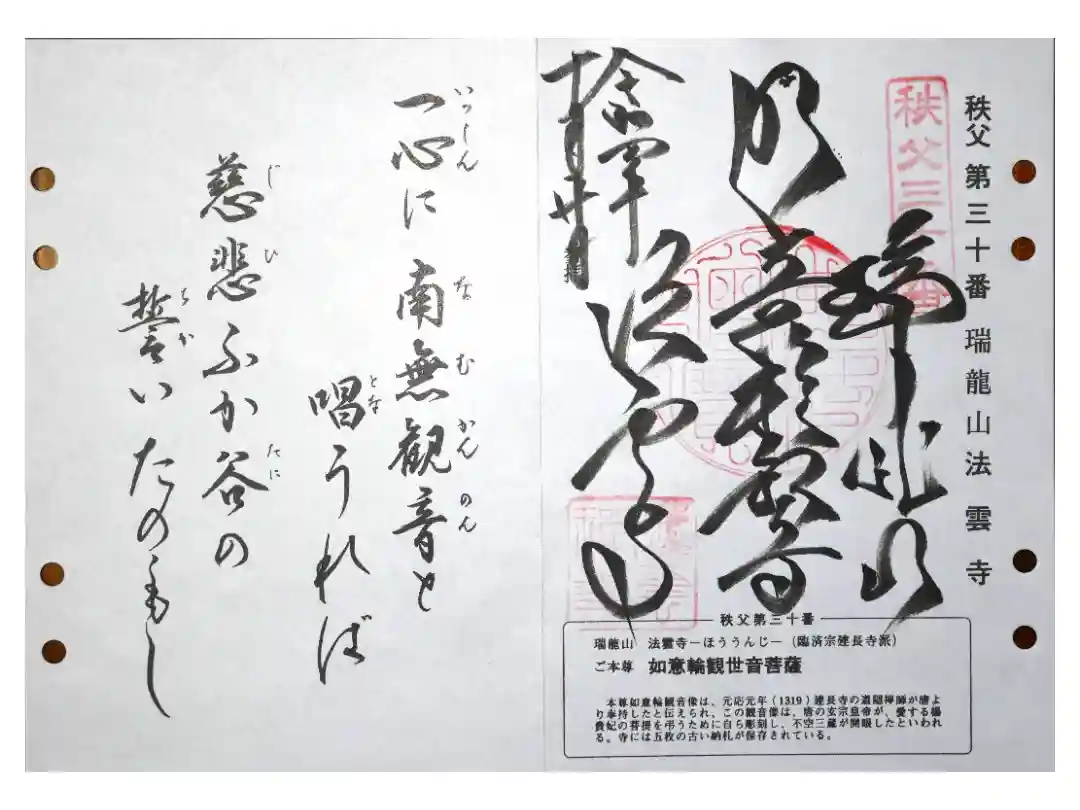 秩父第三十番 瑞龍山法雲寺
秩父三十番
瑞龍山
法雲寺
秩父第三十番
瑞龍山 法雲寺－ほううんじ－(臨済宗建長寺派)
ご本尊 如意輪観世音菩薩
本尊如意輪観音像は、元応元年(1319)建長寺の道隠禅師が唐よ
り奉持したと伝えられ、この観音像は、唐の玄宗皇帝が、愛する楊
貴妃の菩提を弔うために自ら彫刻し、不空三蔵が開眼したといわれ
る。寺には五枚の古い納札が保存されている。
いっしん なむかんのん
一心に南無観音と
とな
唱うれば
じひ たに
慈悲ふか谷の
ちか
誓いたのもし